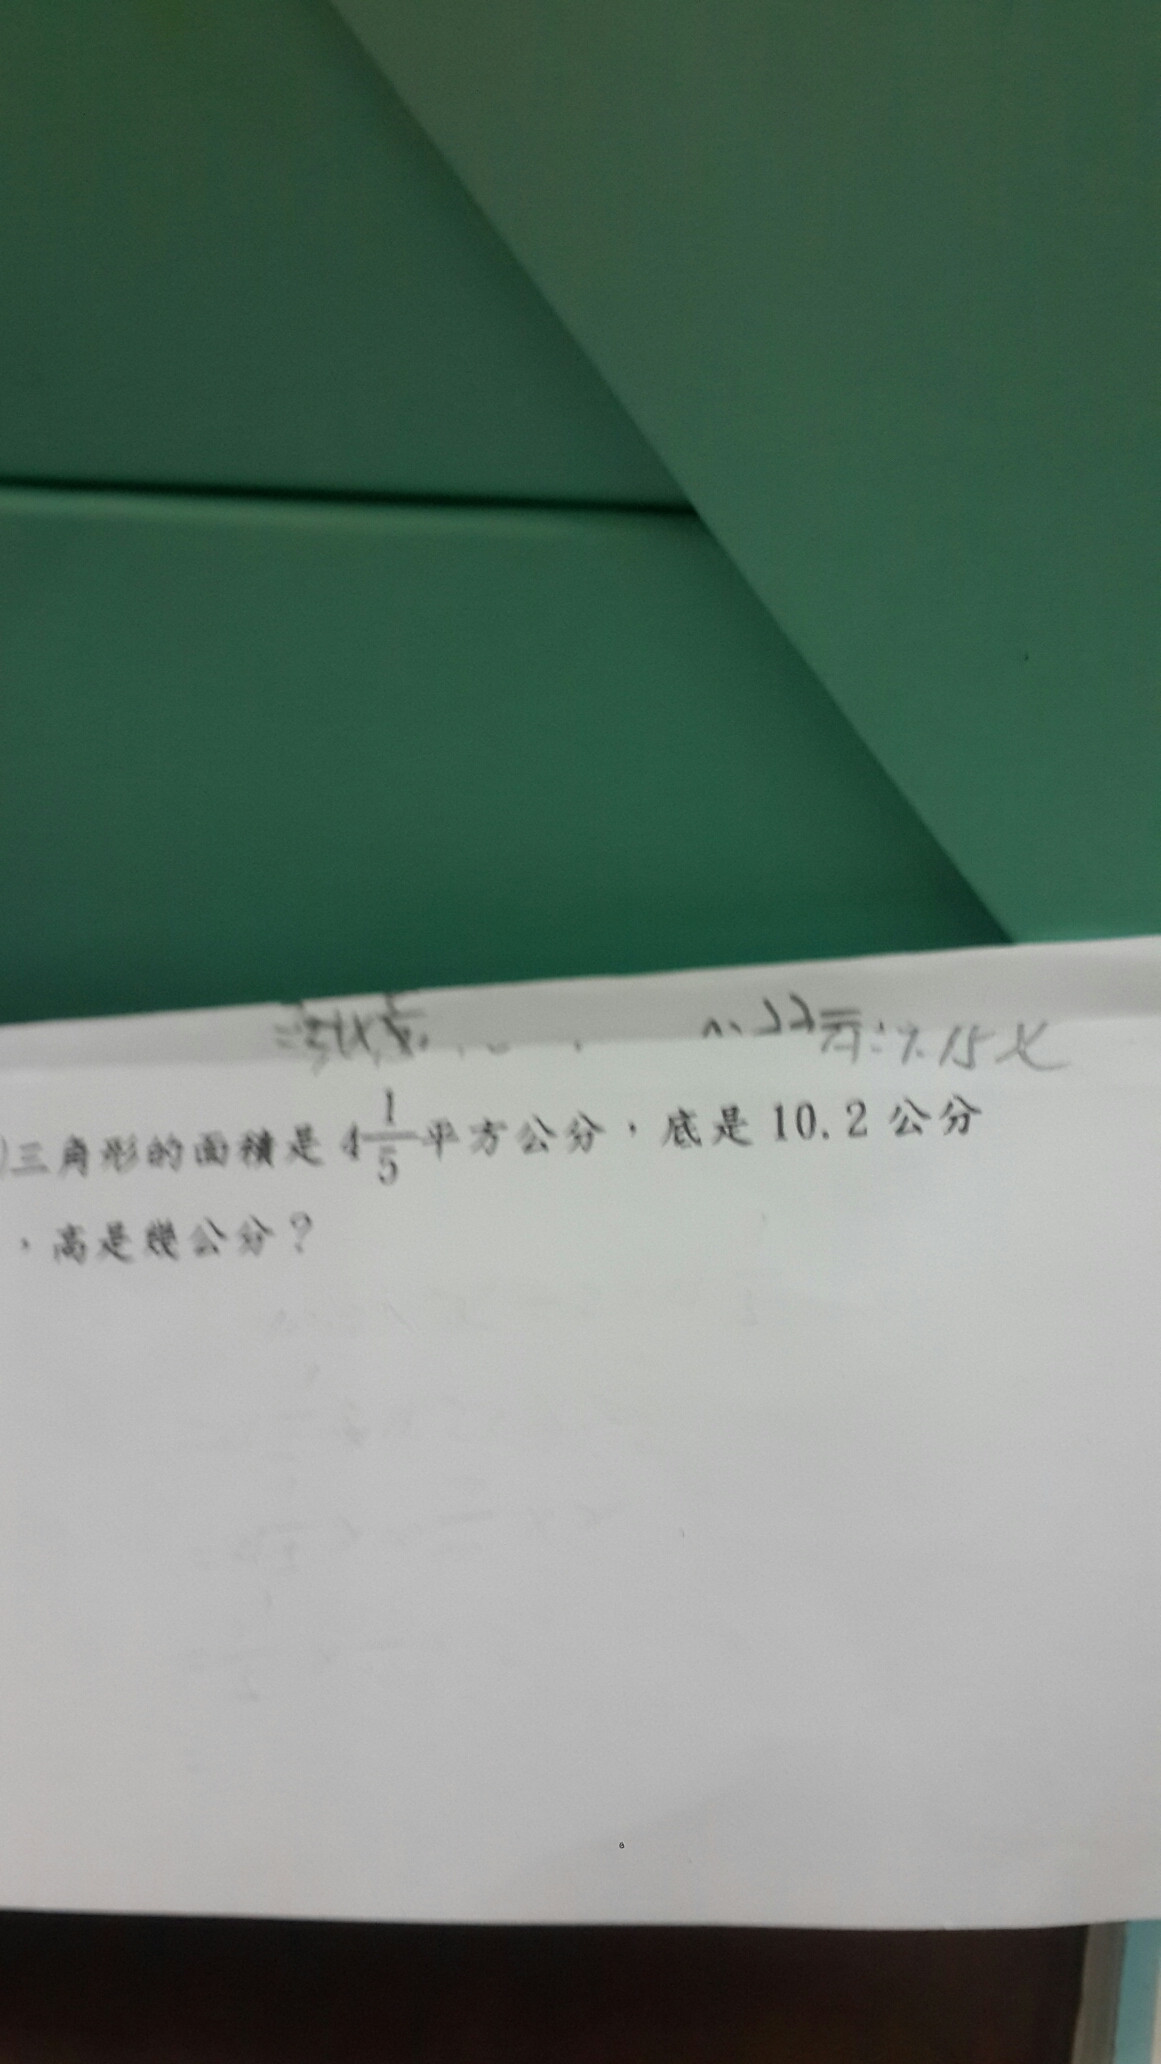 三角形的面積是 4 1/5 平方公分，底是 10.2 公分
，高是幾公分？